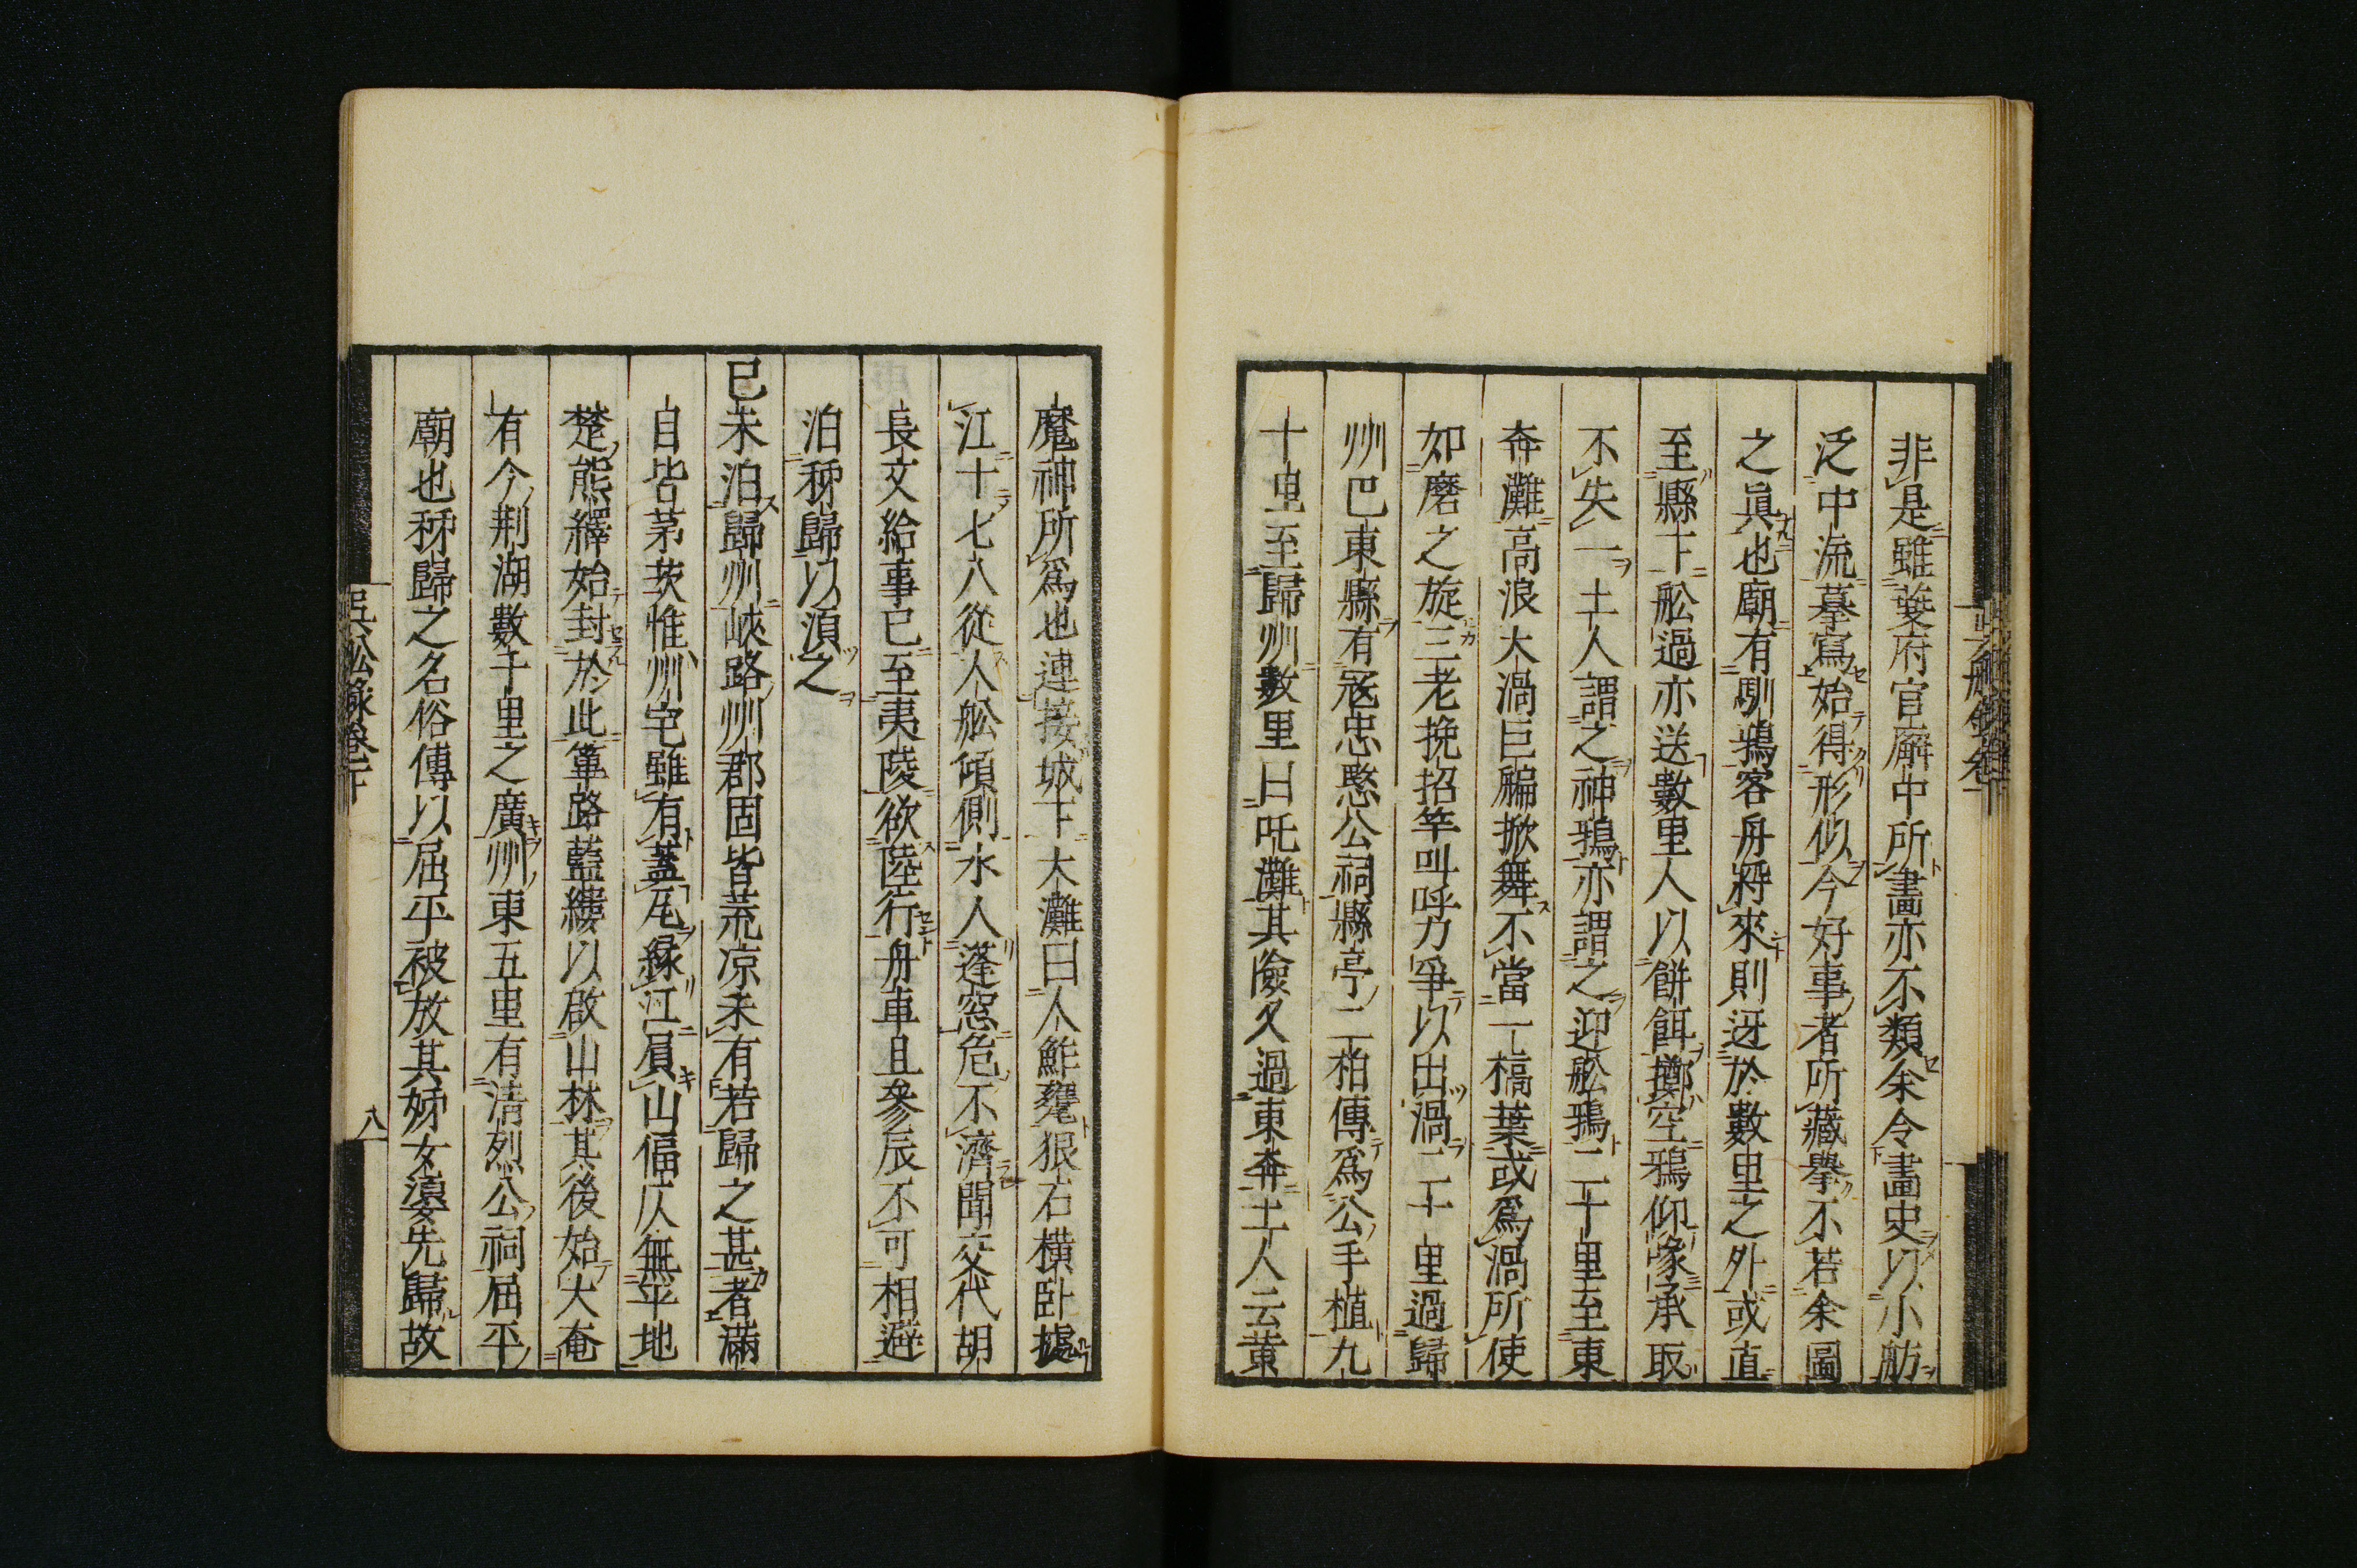 非是雖夔府官廨中所畫亦不類余令畫史以小舫
泛中流摹寫始得形似今好事者所藏擧不若余圖
之眞也廟有馴鴉客舟將來則迓於數里之外或直
至縣下舩過亦送數里人以餅餌擲空鴉仰喙承取
不失一土人謂之神鴉亦謂之迎舩鴉二十里至東
奔灘高浪大渦巨艑掀舞不當一槁葉或爲渦所使
如磨之旋三老挽招竿叫呼力爭以出渦二十里過歸
州巴東縣有寇忠愍公祠縣亭二柏傳爲公手植九
十里至歸州數里曰吒灘其險久過東奔土人云黃
魔神所爲也連接城下大灘曰人鮓甕狠石橫臥據
江十七八從人舩傾側水入蓬窓危不濟聞交代胡
長文給事已至夷陵欲陸行舟車且參辰不可相避
泊秭歸以湏之
己未泊歸州峽路州郡固皆荒凉未有若歸之甚者滿
目皆茅茨惟州宅雖有蓋瓦緣江員山偪仄無平地
楚熊繹始封於此篳路藍縷以啟山林其後始大奄
有今荆湖數千里之廣州東五里有淸烈公祠屈平
廟也秭歸之名俗傳以屈平被放其姊女湏先歸故
吳舩錄卷下
八